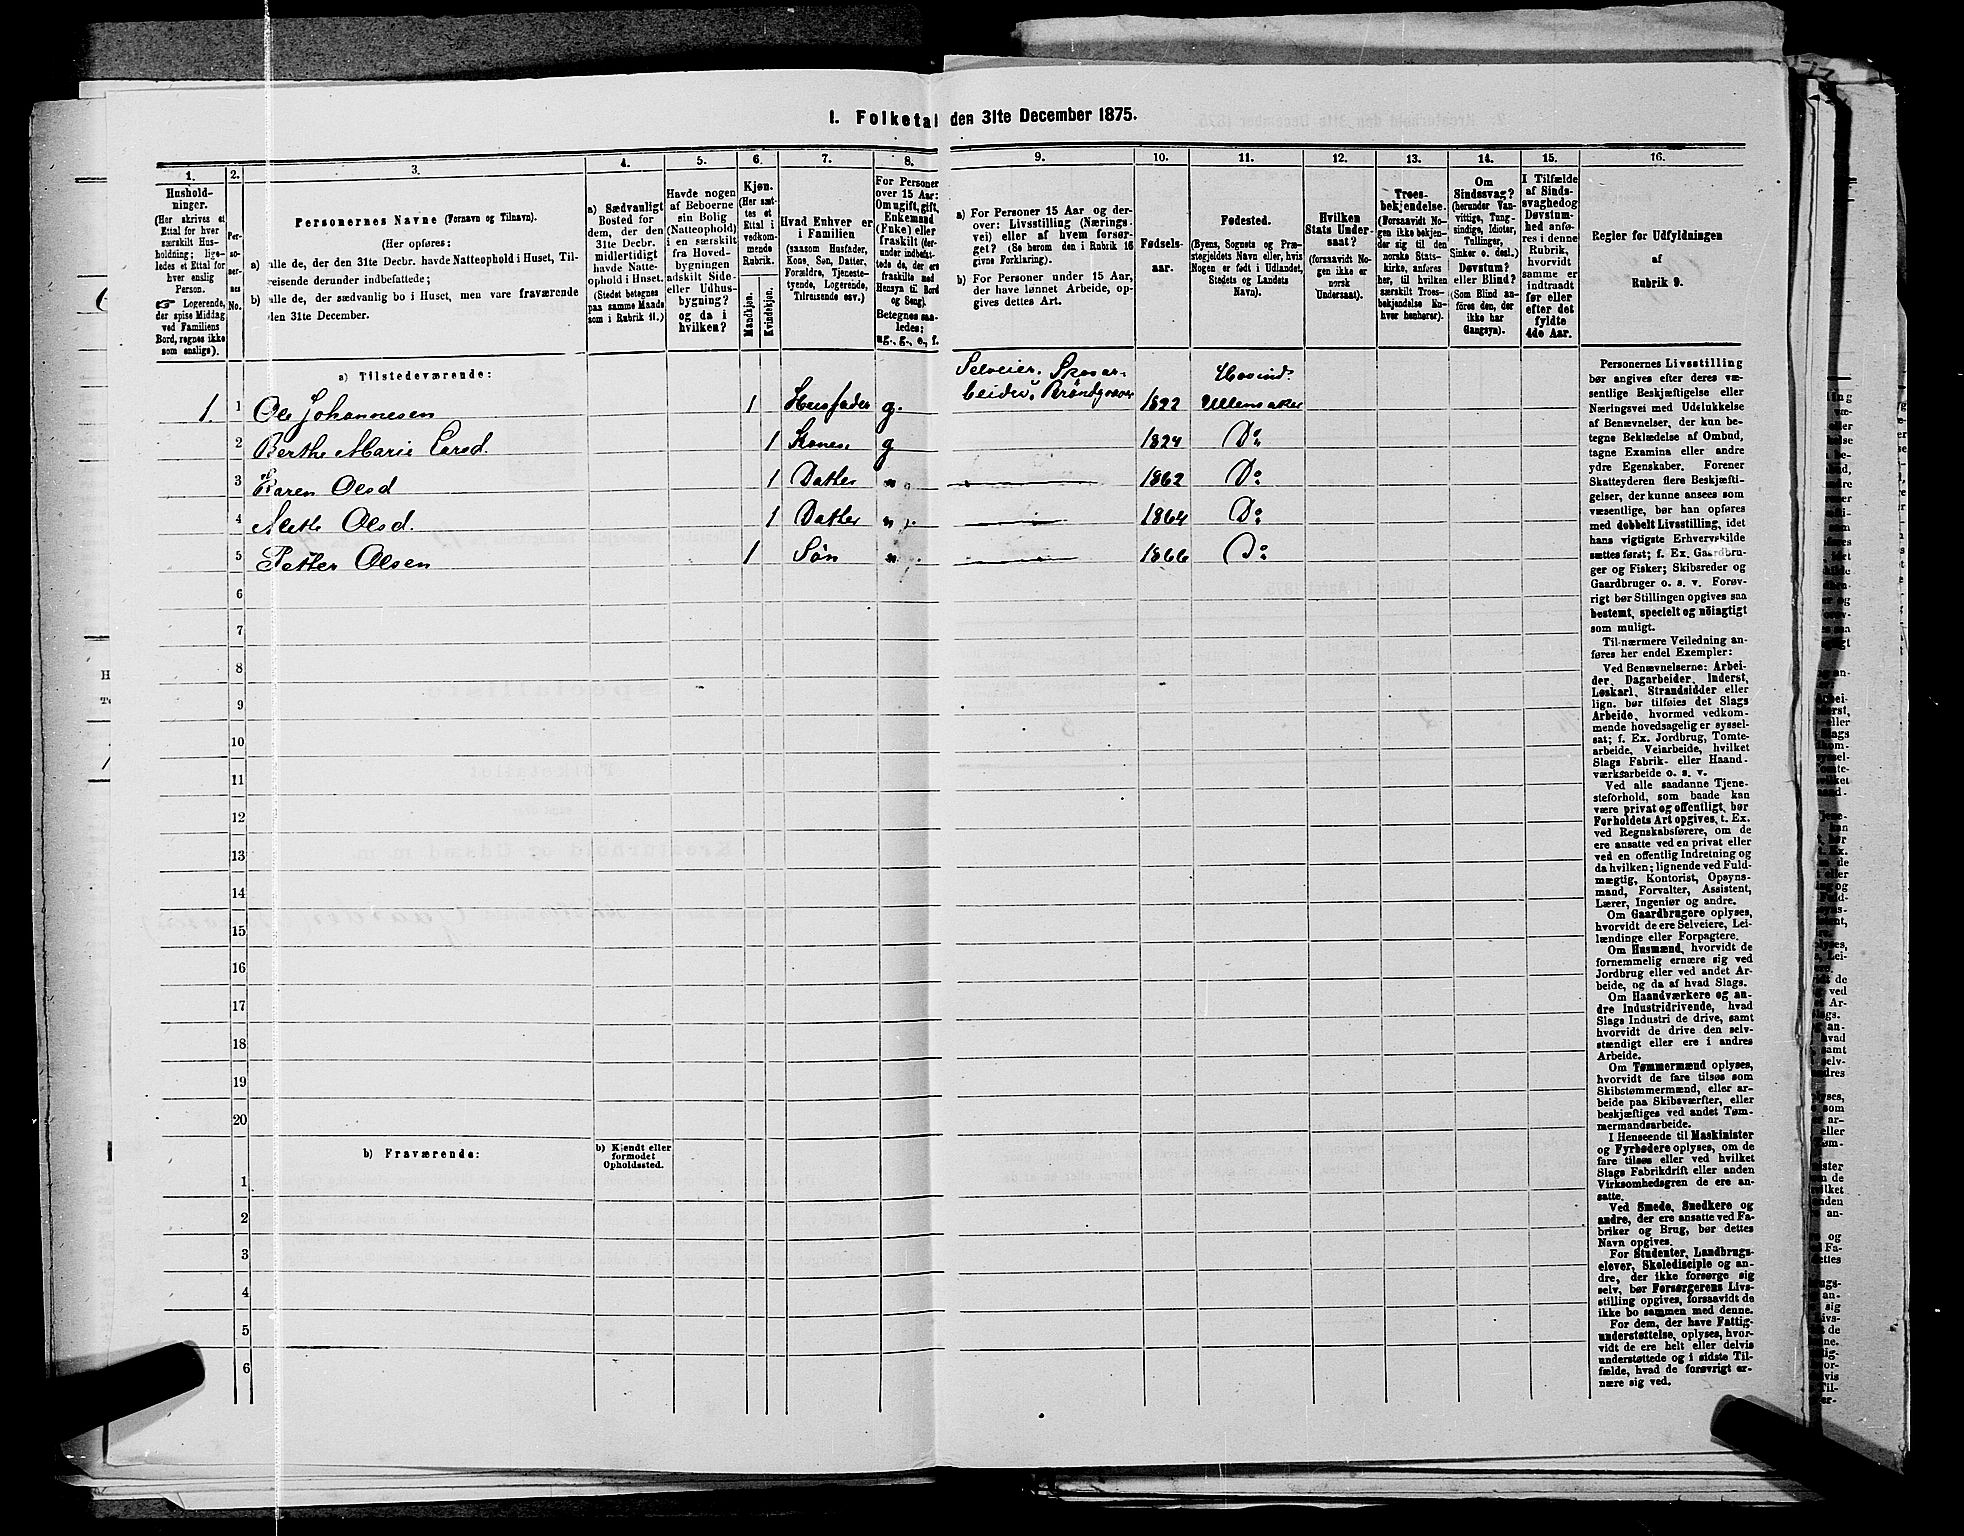 I. Folketal den 31te December 1875.
1. 2. 3. 4. 5. 6. 7. 8. 9. 10. 11. 12. 13. 14. 15. 16.
Hushold-
ninger.
(Her skrives et
Ettal for hver
særskilt Hus-
holdning; lige-
ledes et Ettal for
hver enslig
Person.
☞ Logerende,
der spise Middag
ved Familiens
Bord, regnes ikke
som enslige).
Per-
so-
ner-
nes
No.
Personernes Navne (Fornavn og Tilnavn).
(Her opføres:
a) alle de, der den 31te Decbr. havde Natteophold i Huset, Til-
reisende derunder indbefattede;
b) alle de, der sædvanlig bo i Huset, men vare fraværende
den 31te December.
a) Sædvanligt
Bosted for
dem, der den
31te Decbr.
midlertidigt
havde Natte-
ophold i Huset.
(Stedet betegnes
paa samme Maade
som i Rubrik 11.)
Havde nogen
af Beboerne
sin Bolig
(Natteophold)
i en særskilt
fra Hoved-
bygningen
adskilt Side-
eller Udhus-
bygning?
og da i
hvilken?
Kjøn.
(Her sæt-
tes et
Ettal i
vedkom-
mende
Rubrik.
Mandkjøn.
Kvindekjøn.
Hvad Enhver er
i Familien
(saasom Husfader,
Kone, Søn, Datter,
Forældre, Tjeneste-
tyende, Logerende,
Tilreisende osv.)
For Personer
over 15 Aar:
Om ugift, gift,
Enkemand
(Enke) eller
fraskilt (der-
under indbefat-
tede de, der ere
fraskilte med
Hensyn til Bord
og Seng).
Betegnes saa-
ledes:
ug., g., e., f.
a) For Personer 15 Aar og der-
over: Livsstilling (Nærings-
vei) eller af hvem forsør-
get? (Se herom den i Rubrik 16
givne Forklaring).
b) For Personer under 15 Aar,
der have lønnet Arbeide, op-
gives dettes Art.
Fødsels-
aar.
Fødested.
(Byens, Sognets og Præ-
stegjeldets Navn eller, hvis
Nogen er født i Udlandet,
Stedets og Landets
Navn).
Hvilken
Stats Under-
saat?
(forsaavidt No-
gen ikke er
norsk
Undersaat).
Troes-
bekjendelse.
(Forsaavidt No-
gen ikke bekjen-
der sig til den
norske Stats-
kirke, anføres
her, til hvilken
særskilt Troes-
bekjendelse En-
hver henhører).
Om
Sindssvag?
(herunder Van-
vittige, Tung-
sindige, Idioter,
Tullinger,
Sinker o. desl.)
Døvstum?
eller Blind?
(Som Blind an-
føres den, der
ikke har
Gangsyn).
I Tilfælde
af Sinds-
svaghed og
Døvstum-
hed anfø-
res i denne
Rubrik,
hvorvidt
samme er
indtraadt
før eller
efter det
fyldte
4de Aar.
Regler for Udfyldningen
af
Rubrik 9.
a) Tilstedeværende:
Selveier. Skovar- Hovind.
1. 1 Ole Johannesen 1 Husfader g. beider, Brøndgraver 1822 Ullensaker
2 Berthe Marie Larsd. 1 Kones. g 1824 Do
3 Karen Olsd 1 Datter 1862 Do
4 Mette Olsd. 1 Datter 1864 Do
5 Petter Olsen 1 Søn 1866 Do
6
7
8
9
10
11
12
13
14
15
16
17
18
19
20
b) Fraværende:
b) Kjendt eller
formodet
Opholdssted.
1
2
3
4
5
6
Personernes Livsstilling
bør angives efter deres væ-
sentlige Beskjæftigelse eller
Næringsvei med Udelukkelse
af Benævnelser, der kun be-
tegne Beklædelse af Ombud,
tagne Examina eller andre
ydre Egenskaber. Forener
Skatteyderen flere Beskjæfti-
gelser, der kunne ansees som
væsentlige, bør han opføres
med dobbelt Livsstilling, idet
hans vigtigste Erhvervskilde
sættes først; f. Ex. Gaardbru-
ger og Fisker; Skibsreder og
Gaardbruger o. s. v. Forøv-
rigt bør Stillingen opgives saa
bestemt, specielt og nøiagtigt
som muligt.
Til nærmere Veiledning an-
føres her endel Exempler:
Ved Benævnelserne: Arbei-
der, Dagarbeider, Inderst,
Løskarl, Strandsidder eller
lign. bør tilføies det Slags
Arbeide, hvormed vedkom-
mende hovedsagelig er syssel-
sat; f. Ex. Jordbrug, Tomte-
arbeide, Veiarbeide, hvilket
Slags Fabrik- eller Haand-
værksarbeide o. s. v.
Ved alle saadanne Tjene-
steforhold, som baade kan
være privat og offentligt, bør
Forholdets Art opgives, t. Ex.
ved Regnskabsførere, om de
ere ansatte ved en privat eller
ved en offentlig Indretning og
da hvilken; lignende ved Fuld-
mægtig, Kontorist, Opsyns-
mand, Forvalter, Assistent,
Lærer, Ingeniør og andre.
Om Gaardbrugere oplyses,
hvorvidt de ere Selveiere, Lei-
lændinge eller Forpagtere.
Om Husmænd, hvorvidt de
fornemmelig ernære sig ved
Jordbrug eller ved andet Ar-
beide, og da af hvad Slags.
Om Haandværkere og an-
dre Industridrivende, hvad
Slags Industri de drive, samt
hvorvidt de drive den selv-
stændigt eller ere i andres
Arbeide.
Om Tømmermænd oplyses,
hvorvidt de fare tilsøs som
Skibstømmermænd, eller ar-
beide paa Skibsværfter, eller
beskjæftiges ved andet Tøm-
mermandsarbeide.
I Henseende til Maskinister
og Fyrbødere oplyses, om de
fare tilsøs eller ved hvilket
Slags Fabrikdrift eller anden
Virksomhedsgren de ere an-
satte.
Ved Smede, Snedkere og
andre, der ere ansatte ved Fa-
briker og Brug, bør dettes
Navn opgives.
For Studenter, Landbrugs-
elever, Skoledisciple og an-
dre, der ikke forsørge sig
selv, bør Forsørgerens Livs-
stilling opgives, forsaavidt de
ikke bo sammen med denne.
For dem, der have Fattig-
understøttelse, oplyses, hvor-
vidt de ere helt eller delvis
understøttede og i sidste Til-
fælde, hvad de forøvrigt er-
nære sig ved.